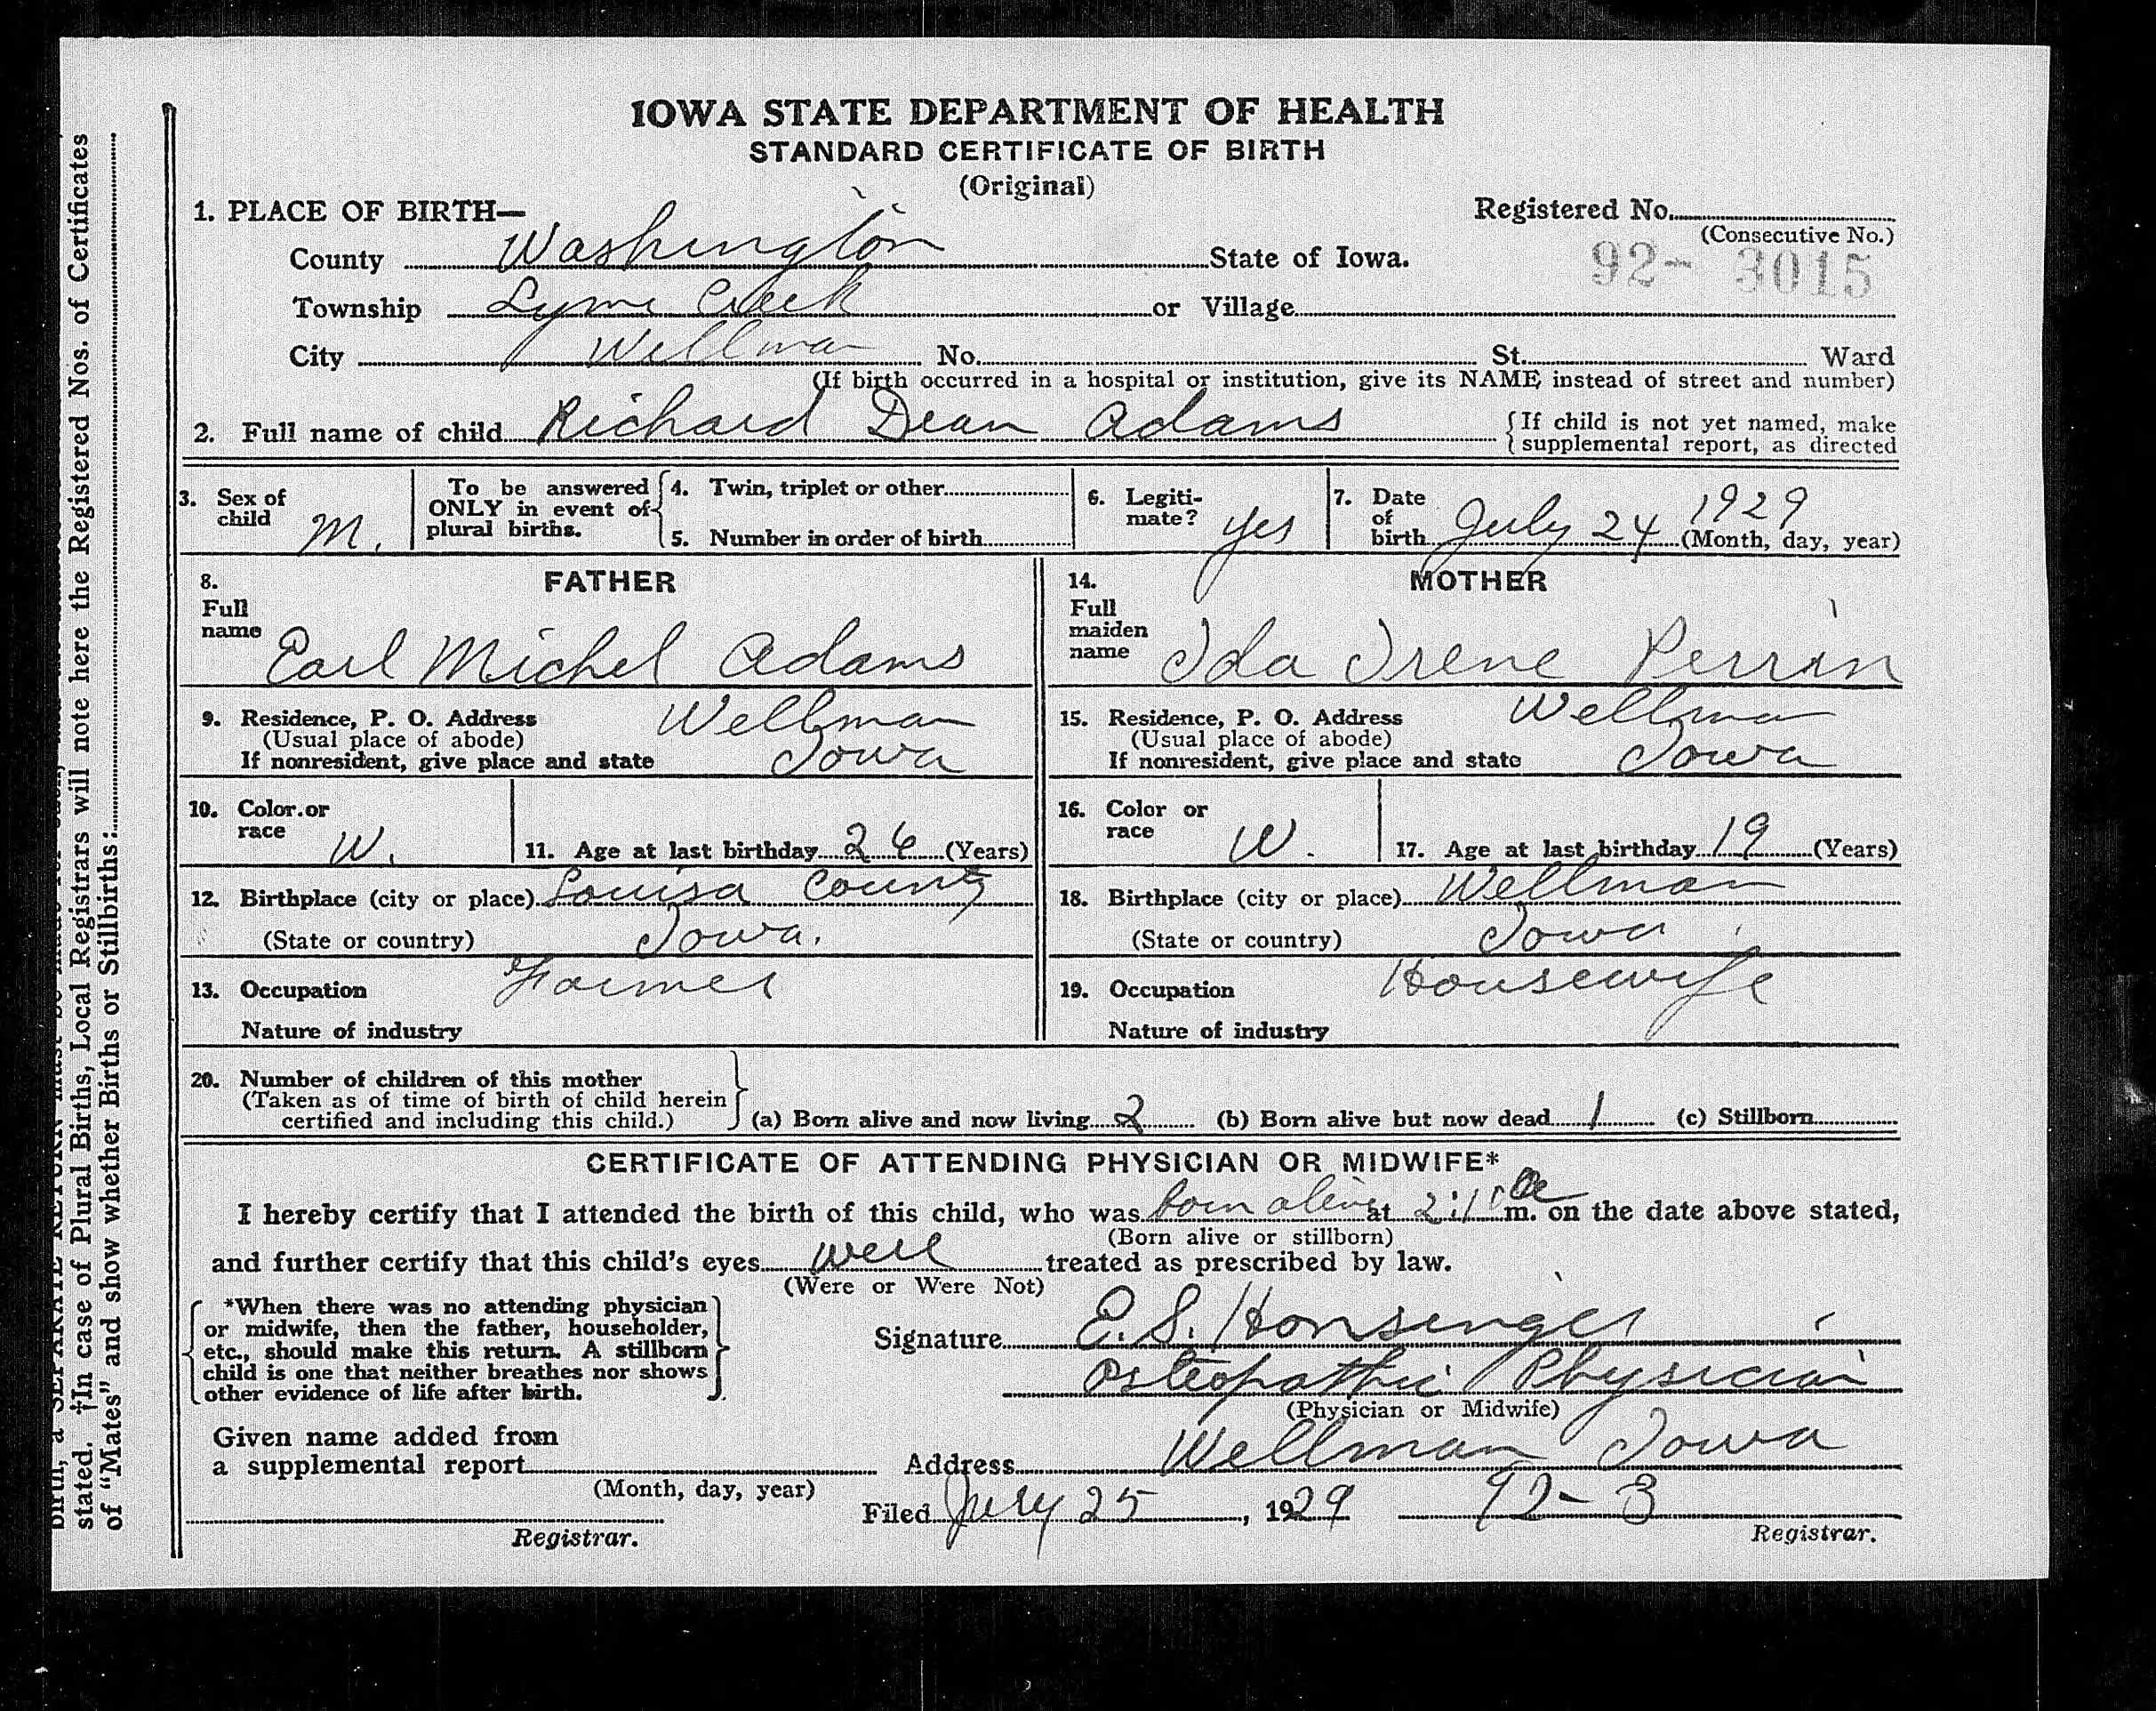 IOWA STATE DEPARTMENT OF HEALTH
STANDARD CERTIFICATE OF BIRTH
(Original)
1. PLACE OF BIRTH—
Registered No.
(Consecutive No.)
92- 3015
County Washington State of Iowa.
Township Lyme Creek or Village
City Wellman No. St. Ward
(If birth occurred in a hospital or institution, give its NAME instead of street and number)
2. Full name of child Richard Dean Adams {If child is not yet named, make
supplemental report, as directed
3. Sex of child M.
To be answered ONLY in event of plural births.
4. Twin, triplet or other
5. Number in order of birth
6. Legiti-mate? yes
7. Date of birth July 24 1929 (Month, day, year)
8. FATHER
Full name Earl Michel Adams
14. MOTHER
Full maiden name Ida Irene Perrin
9. Residence, P. O. Address Wellman
(Usual place of abode) Iowa
If nonresident, give place and state
15. Residence, P. O. Address Wellman
(Usual place of abode) Iowa
If nonresident, give place and state
10. Color or race W.
11. Age at last birthday 26 (Years)
16. Color or race W.
17. Age at last birthday 19 (Years)
12. Birthplace (city or place) Louisa County
(State or country) Iowa.
18. Birthplace (city or place) Wellman
(State or country) Iowa
13. Occupation Farmer
Nature of industry
19. Occupation Housewife
Nature of industry
20. Number of children of this mother
(Taken as of time of birth of child herein
certified and including this child.)
(a) Born alive and now living 2 (b) Born alive but now dead 1 (c) Stillborn
CERTIFICATE OF ATTENDING PHYSICIAN OR MIDWIFE*
I hereby certify that I attended the birth of this child, who was born alive at m. on the date above stated,
(Born alive or stillborn)
and further certify that this child's eyes were treated as prescribed by law.
(Were or Were Not)
*When there was no attending physician
or midwife, then the father, householder,
etc., should make this return. A stillborn
child is one that neither breathes nor shows
other evidence of life after birth.
Signature E. S. Honsinger
Osteopathic Physician
(Physician or Midwife)
Given name added from
a supplemental report
(Month, day, year)
Address Wellman Iowa
Filed July 25, 1929 92-3
Registrar. Registrar.
stated. †In case of Plural Births, Local Registrars will note here the Registered Nos. of Certificates
of "Mates" and show whether Births or Stillbirths: